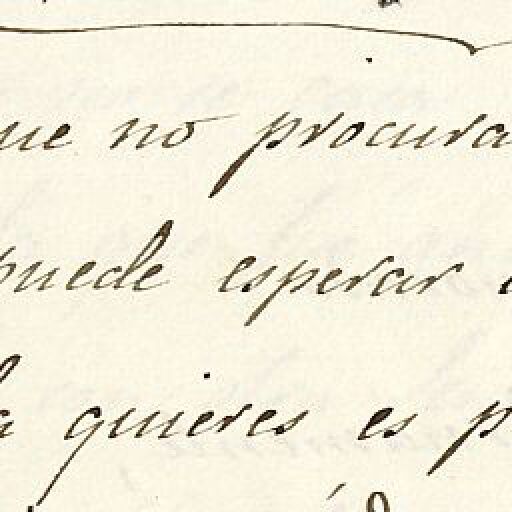 ue no procura
puede esperar
a quieres es p